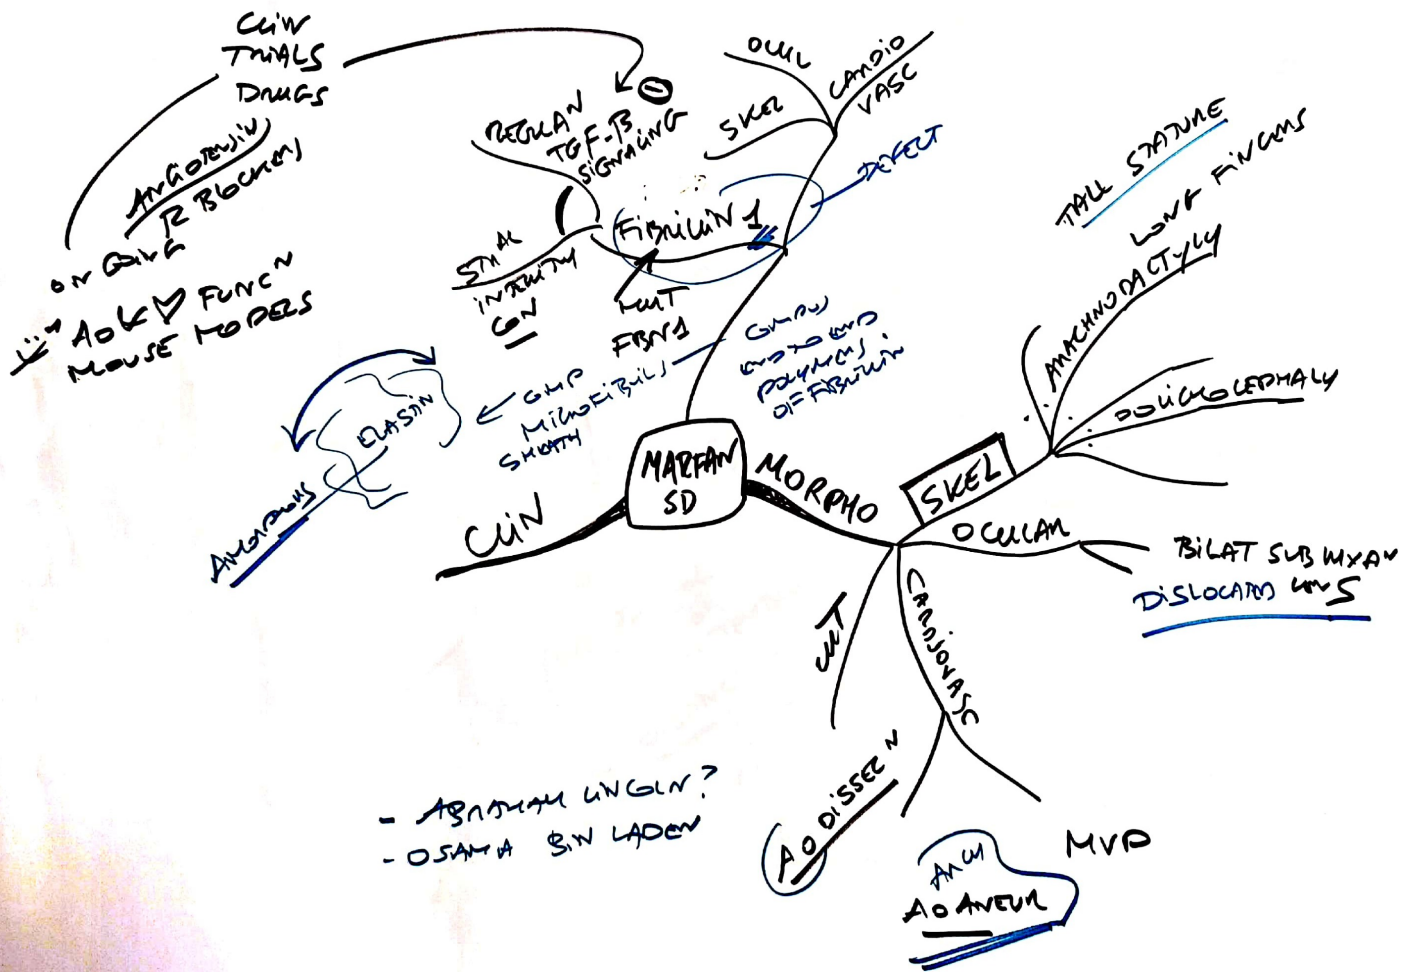 CLIN
TRIALS
DRUGS
ANGIOTENSIN
R BLOCKERS
ON GOING
AO & ♡ FUNC N
MOUSE MODELS
REGULAN
TGF-B
SIGNALING
⊖
OCUL
SKEL
CARDIO
VASC
DEFECT
FIBRILLIN 1
STR AL
INTEGRITY
CON
MUT
FBN1
COMPOS
END TO END
POLYMERS
OF FIBRILLIN
COMP
MICROFIBRILS
SHEATH
ELASTIN
AMORPHOUS
MARFAN
SD
CLIN
MORPHO
SKEL
TALL STATURE
LONG FINGERS
ARACHNODACTYLY
DOLICHOCEPHALY
OCULAR
BILAT SUBLUXA N
DISLOCATED LENS
CARDIOVASC
CUT
AO DISSEC N
ARCH
AO ANEUR
MVP
- ABRAHAM LINCOLN?
- OSAMA BIN LADEN